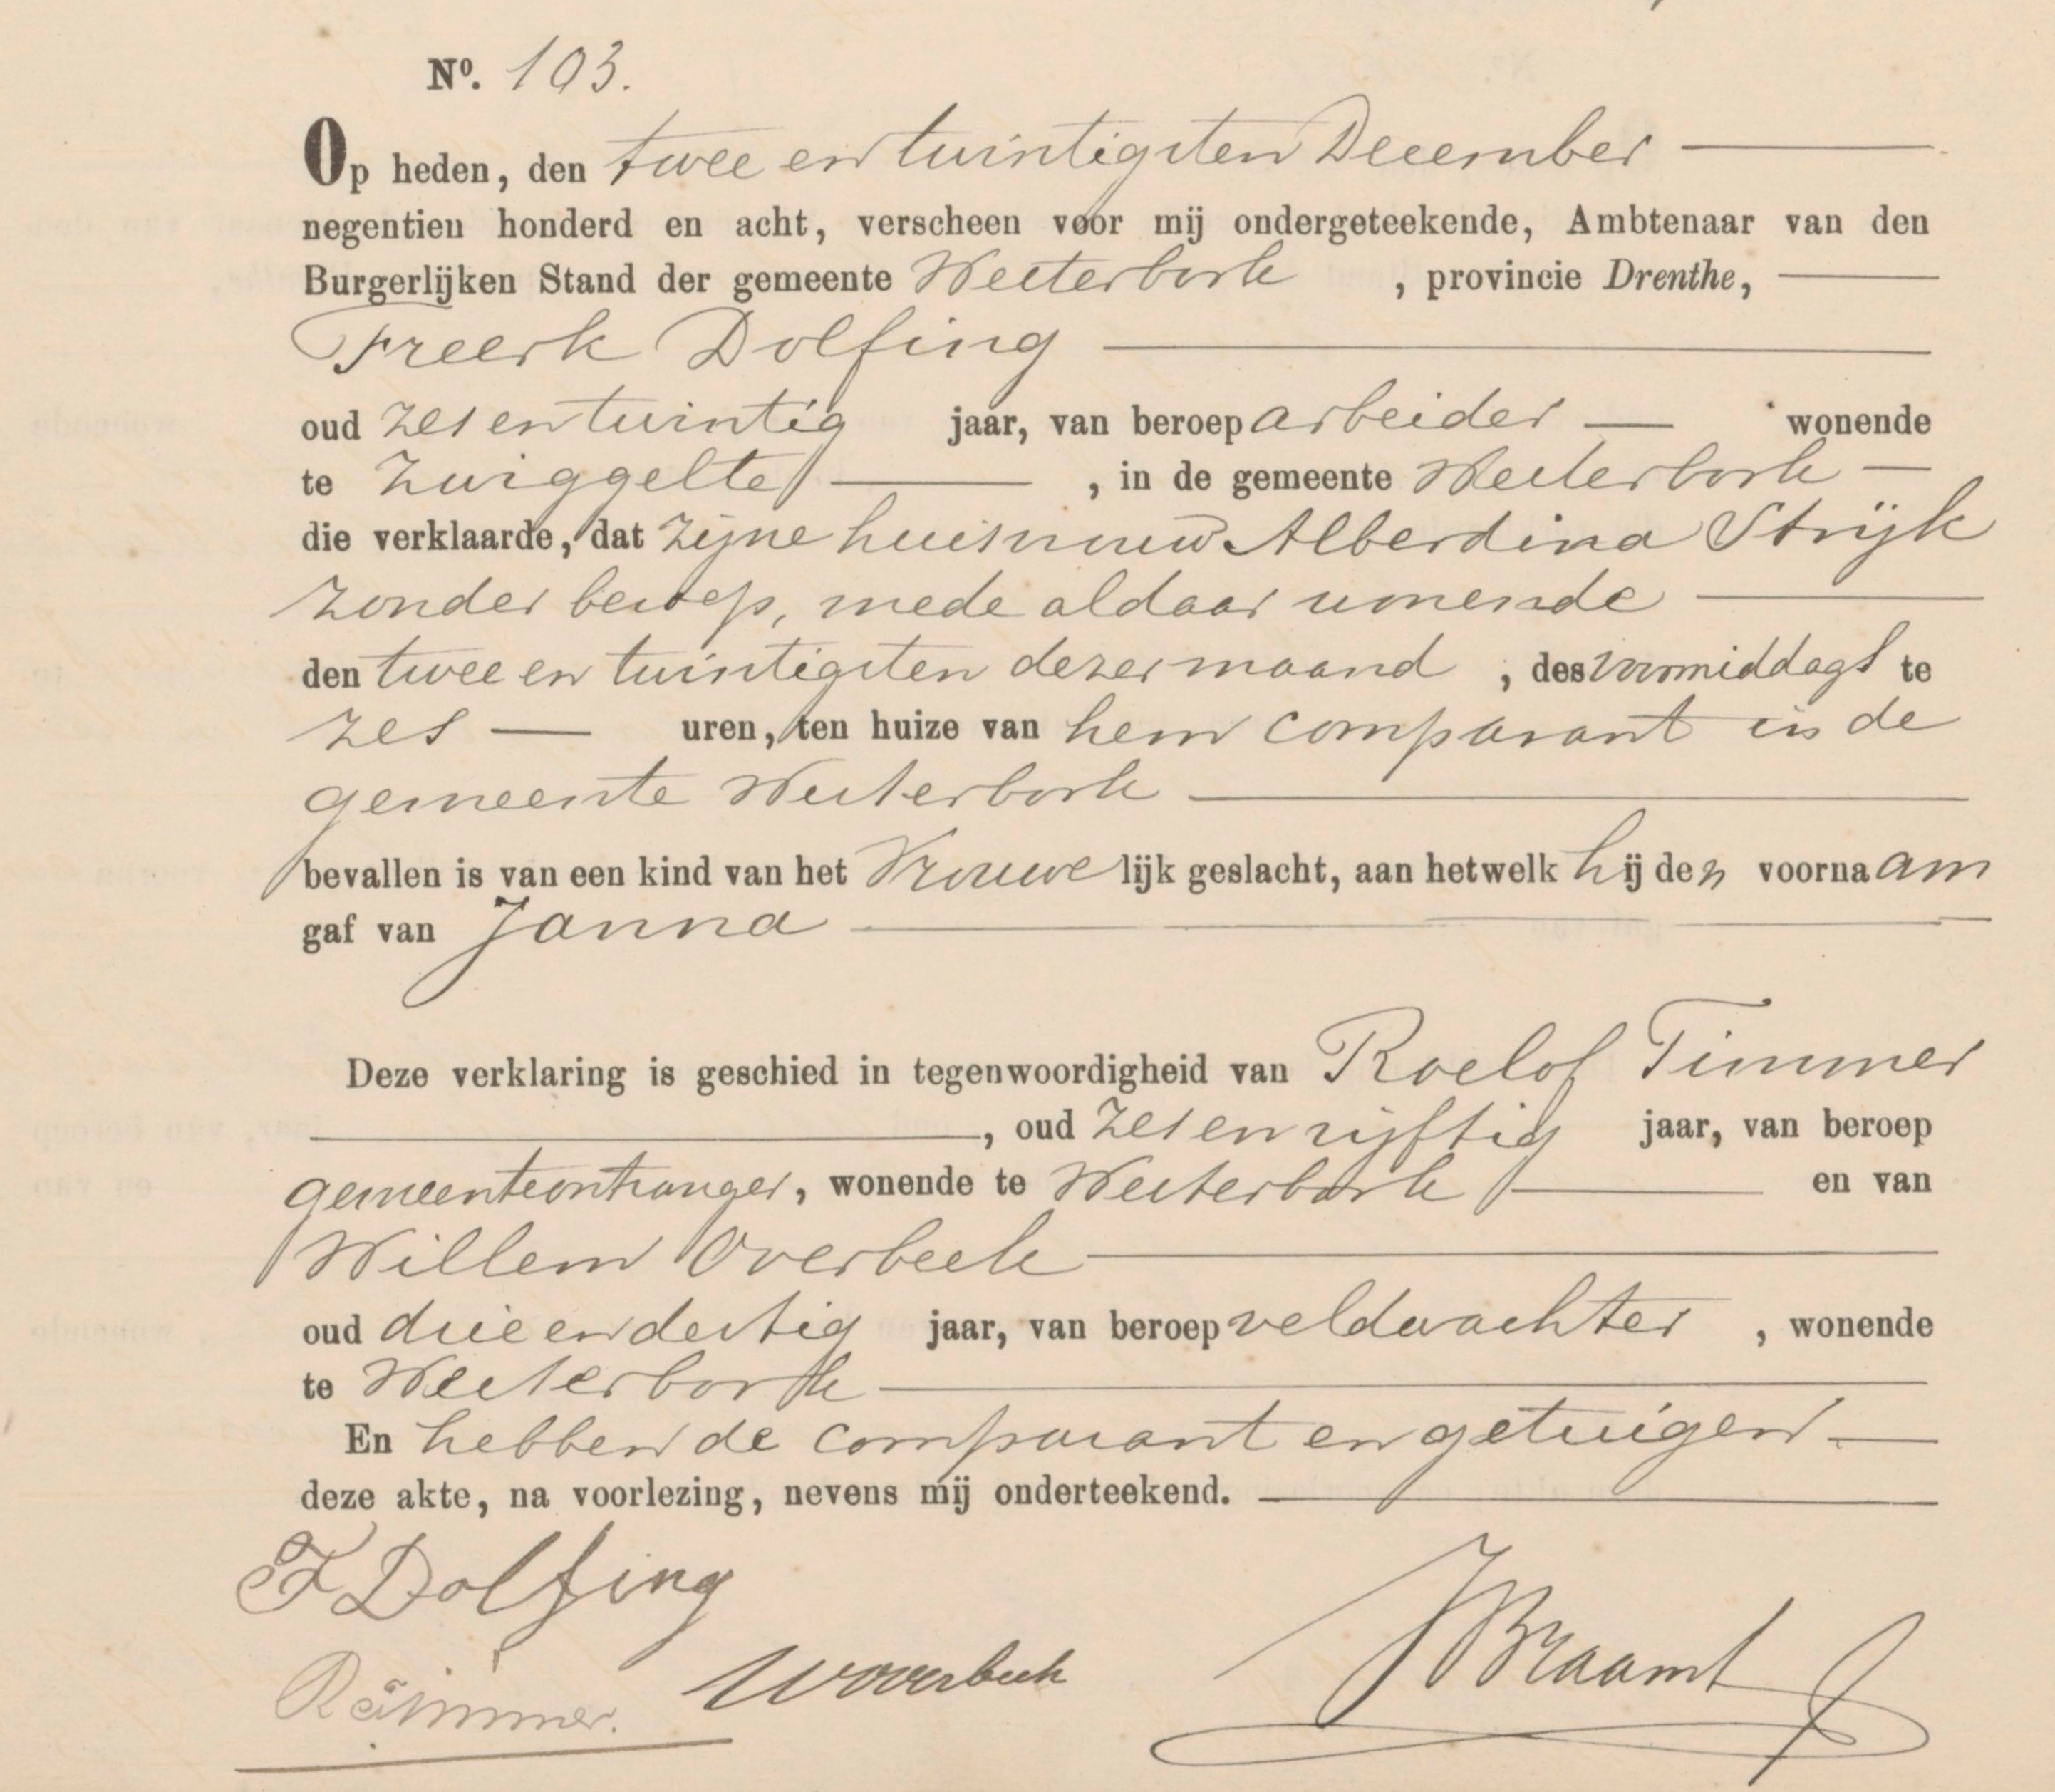 Nº. 103.
Op heden, den twee en twintigsten December
negentien honderd en acht, verscheen voor mij ondergeteekende, Ambtenaar van den
Burgerlijken Stand der gemeente Westerbork, provincie Drenthe,
Freerk Dolfing
oud zes en twintig jaar, van beroep arbeider wonende
te Zwiggelte, in de gemeente Westerbork
die verklaarde, dat zijne huisvrouw Alberdina Strijk
zonder beroep, mede aldaar wonende
den twee en twintigsten dezer maand, des voormiddags te
zes uren, ten huize van hem comparant in de
gemeente Westerbork
bevallen is van een kind van het Vrouwelijk geslacht, aan hetwelk hij den voornaam
gaf van Janna
Deze verklaring is geschied in tegenwoordigheid van Roelof Timmer
, oud zes en vijftig jaar, van beroep
gemeenteontvanger, wonende te Westerbork en van
Willem Overbeek
oud drie en dertig jaar, van beroep veldwachter, wonende
te Westerbork
En hebben de comparant en getuigen
deze akte, na voorlezing, nevens mij onderteekend.
F Dolfing
RTimmer. WOverbeek